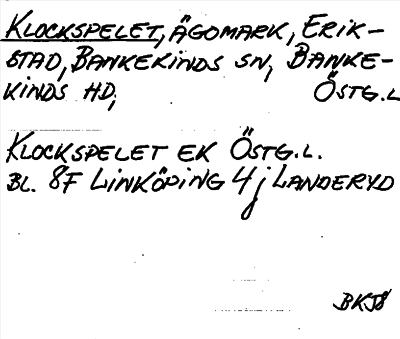 KLOCKSPELET, ÄGOMARK, ERIK-
STAD, BANKEKINDS SN, BANKE-
KINDS HD, ÖSTG.L
KLOCKSPELET EK ÖSTG.L.
BL. 8F LINKÖPING 4j LANDERYD